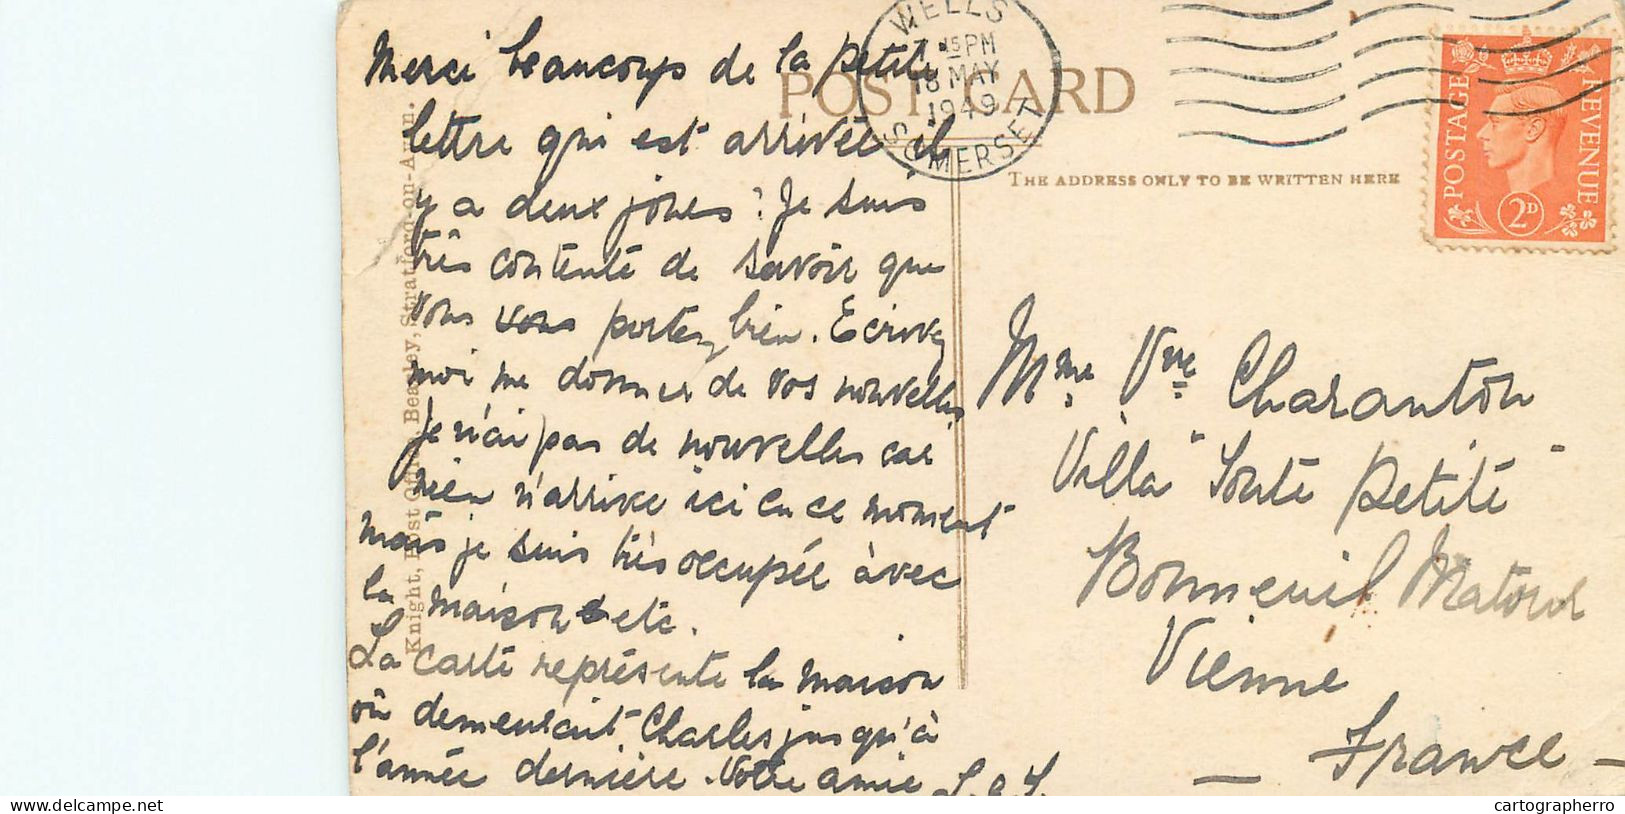 Merci beaucoup de la petite
lettre qui est arrivée il
y a deux jours. Je suis
très contente de savoir que
vous vous portez bien. Ecrivez
moi me donner de vos nouvelles
Je n'ai pas de nouvelles car
rien n'arrive ici en ce moment
mais je suis très occupée avec
la maison etc.
La carte représente la maison
où demeurait Charles jusqu'à
l'année dernière. Votre amie
Knight, Post Office, Bearley, Stratford-on-Avon.
POST CARD
THE ADDRESS ONLY TO BE WRITTEN HERE
WELLS
15 PM
18 MAY
1949
SOMERSET
POSTAGE
REVENUE
2D
Mme Vve Charanton
Villa "Toute Petite"
Bonneuil Matours
Vienne
— France —
delcampe.net
cartographerro